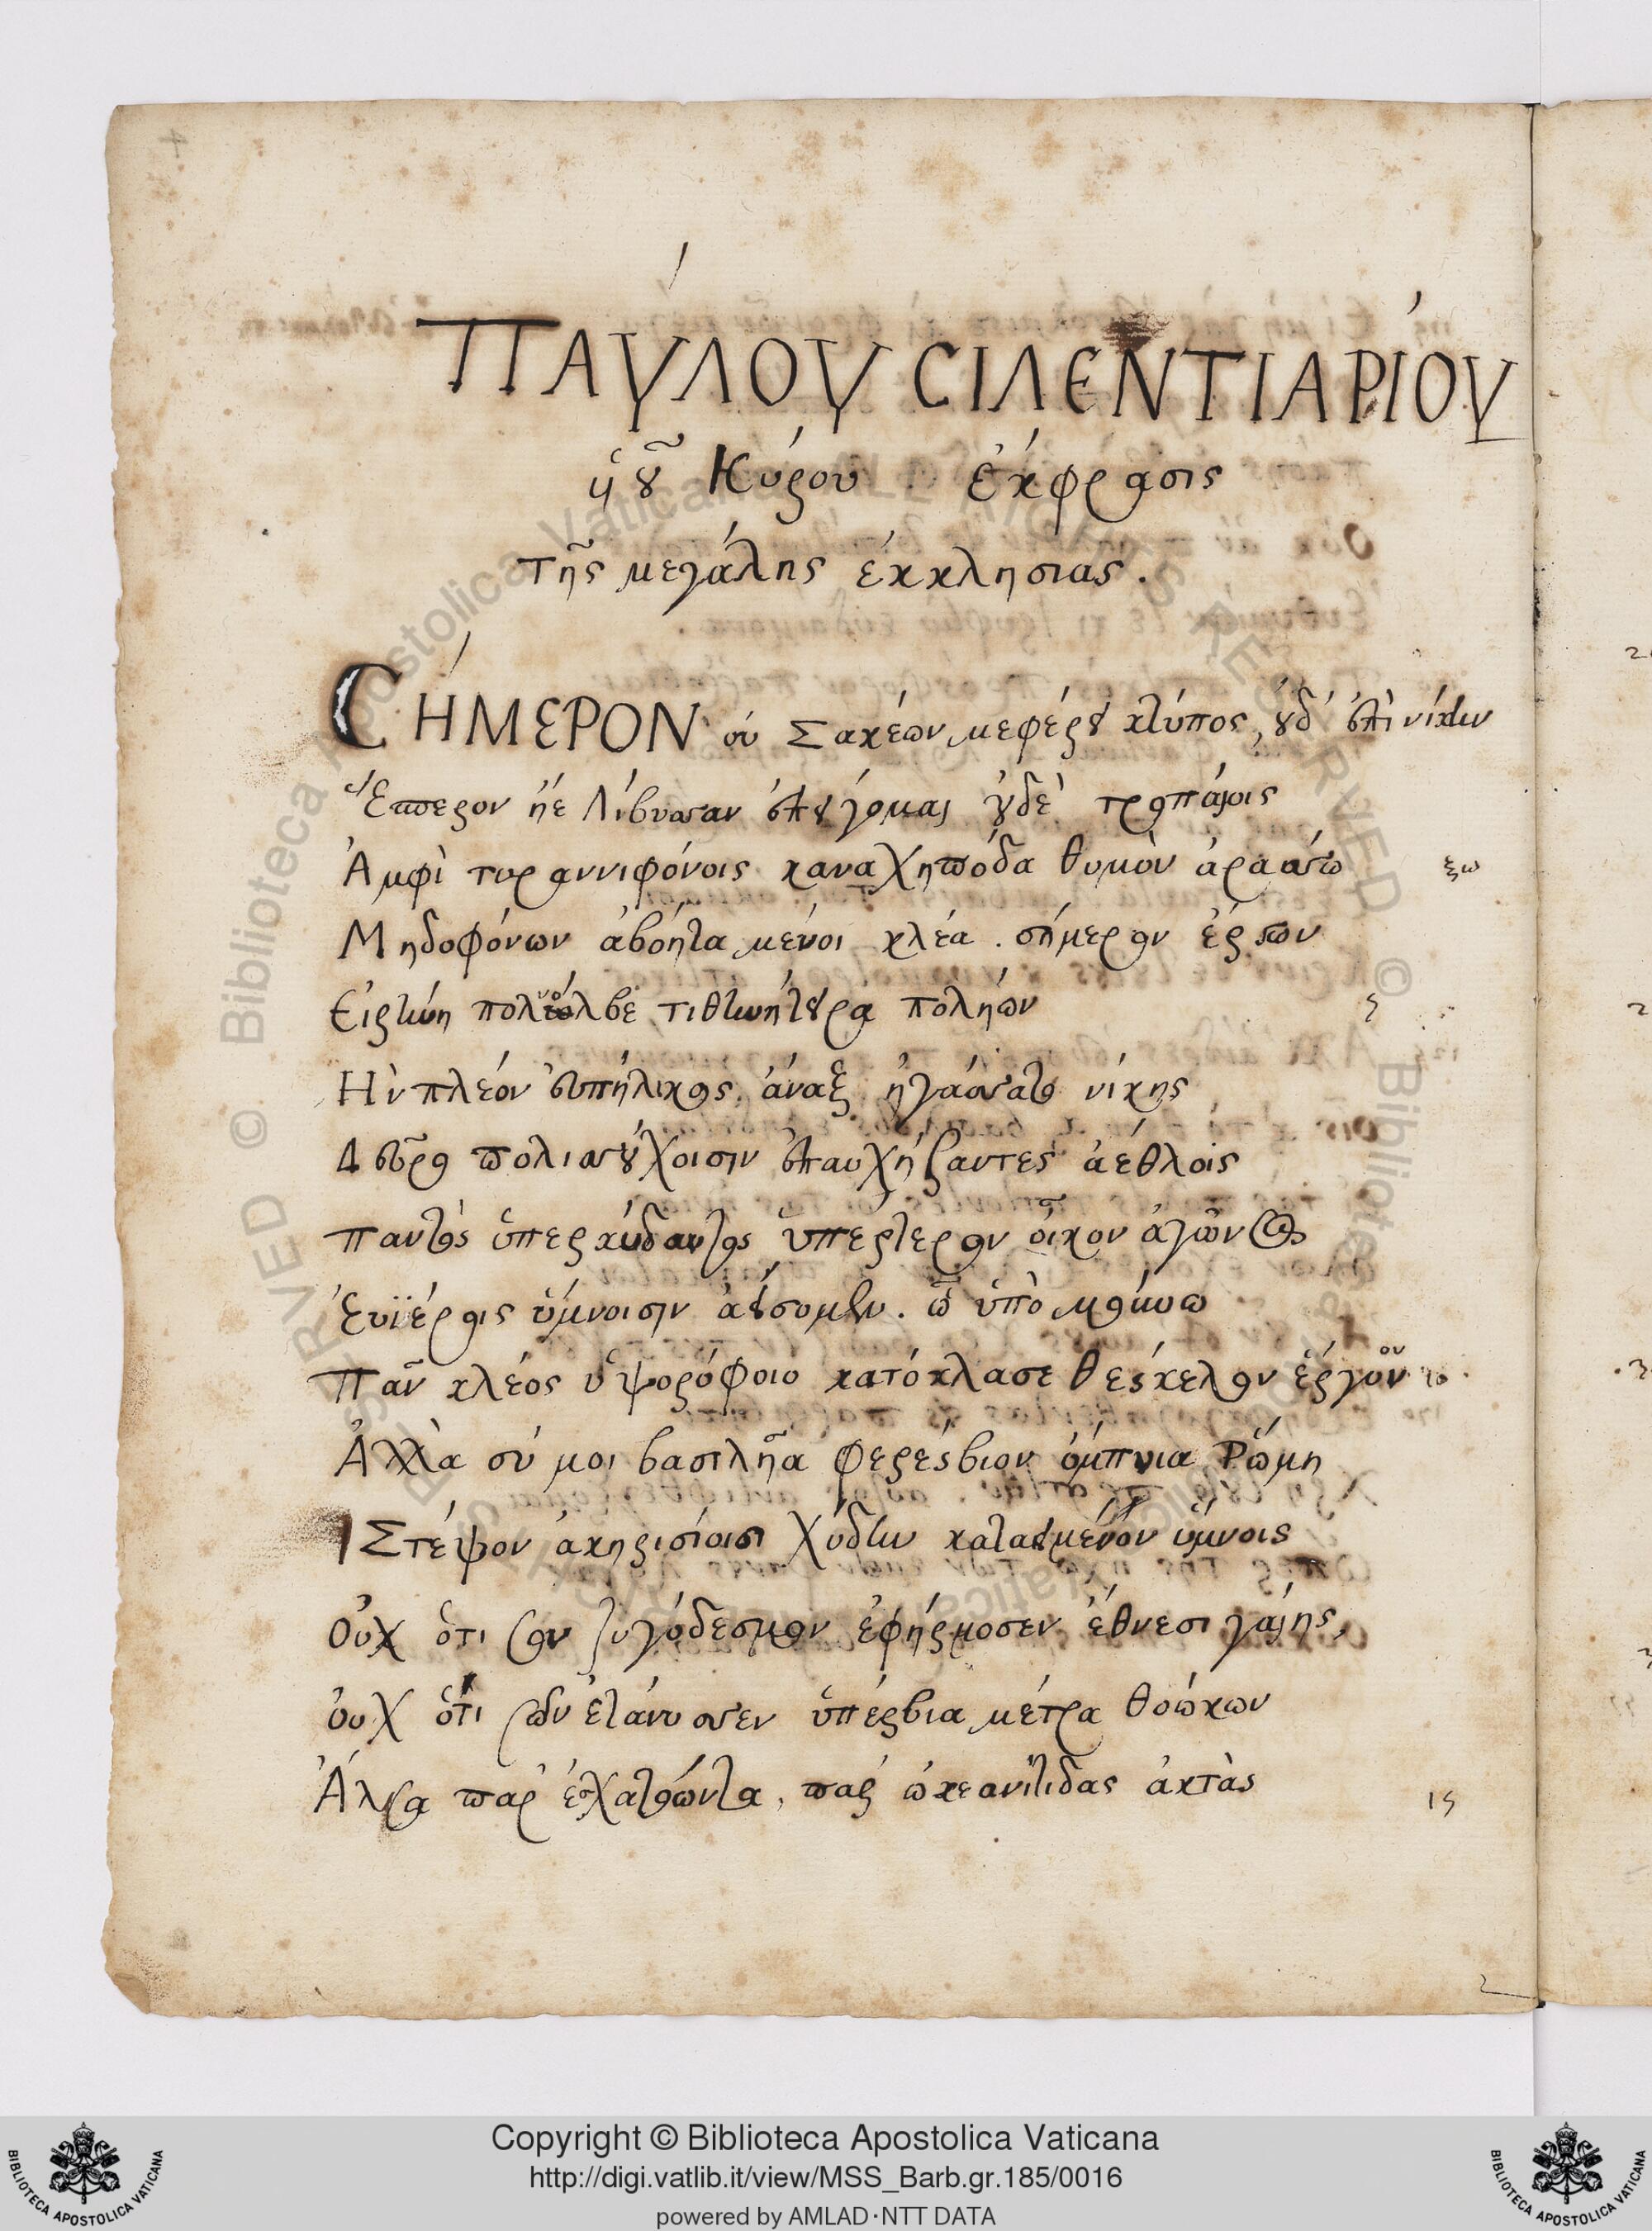 ΠΑΥΛΟΥ CΙΛΕΝΤΙΑΡΊΟΥ
ὑοῦ Κύρου ἔκφρασις
τῆς μεγάλης ἐκκλησιας.
CΉΜΕΡΟΝ οὐ Σακέων με φέρει κτύπος, οὐδ' ἐπὶ νίκην
Ἕσπερον ἠὲ Λίβυσσαν ἐπείγομαι οὐδὲ τροπαίοις
Ἀμφὶ τυραννιφόνοις καναχηπόδα θυμὸν ἀράσσω
ξω
Μηδοφόνων ἀβόητα μένοι κλέα. σήμερον ἔρπων
Εἰρήνη πολύολβε τιθηνήτειρα πολήων
5
Ἣν πλέον εὐπήληκος ἄναξ ἠγάσσατο νίκης
Δεῦρο πολισσούχοισιν ἐπαυχήσαντες ἀέθλοις
Παντὸς ὑπερκύδαντος ὑπέρτερον οἶκον ἀγῶνος
Εὐϊέροις ὕμνοισιν ἀείσομεν. ᾧ ὕπο μούνῳ
Πᾶν κλέος ὑψορόφοιο κατόκλασε θέσκελον ἔργον
10
Ἀλλὰ σύ μοι βασιλῆα φερέσβιον ὄμπνια Ῥώμη
Στέψον ἀκηρισίοισι χύδην καταειμένον ὕμνοις
Οὐχ ὅτι σὸν ζυγόδεσμον ἐφήρμοσεν ἔθνεσι γαίης,
οὐχ ὅτι σῶν ἐτάνυσσεν ὑπέρβια μέτρα θοώκων
Ἄλσα παρ' ἐσχατόωντα, παρ' ὠκεανίτιδας ἀκτὰς
15
2
Copyright © Biblioteca Apostolica Vaticana
http://digi.vatlib.it/view/MSS_Barb.gr.185/0016
powered by AMLAD·NTT DATA